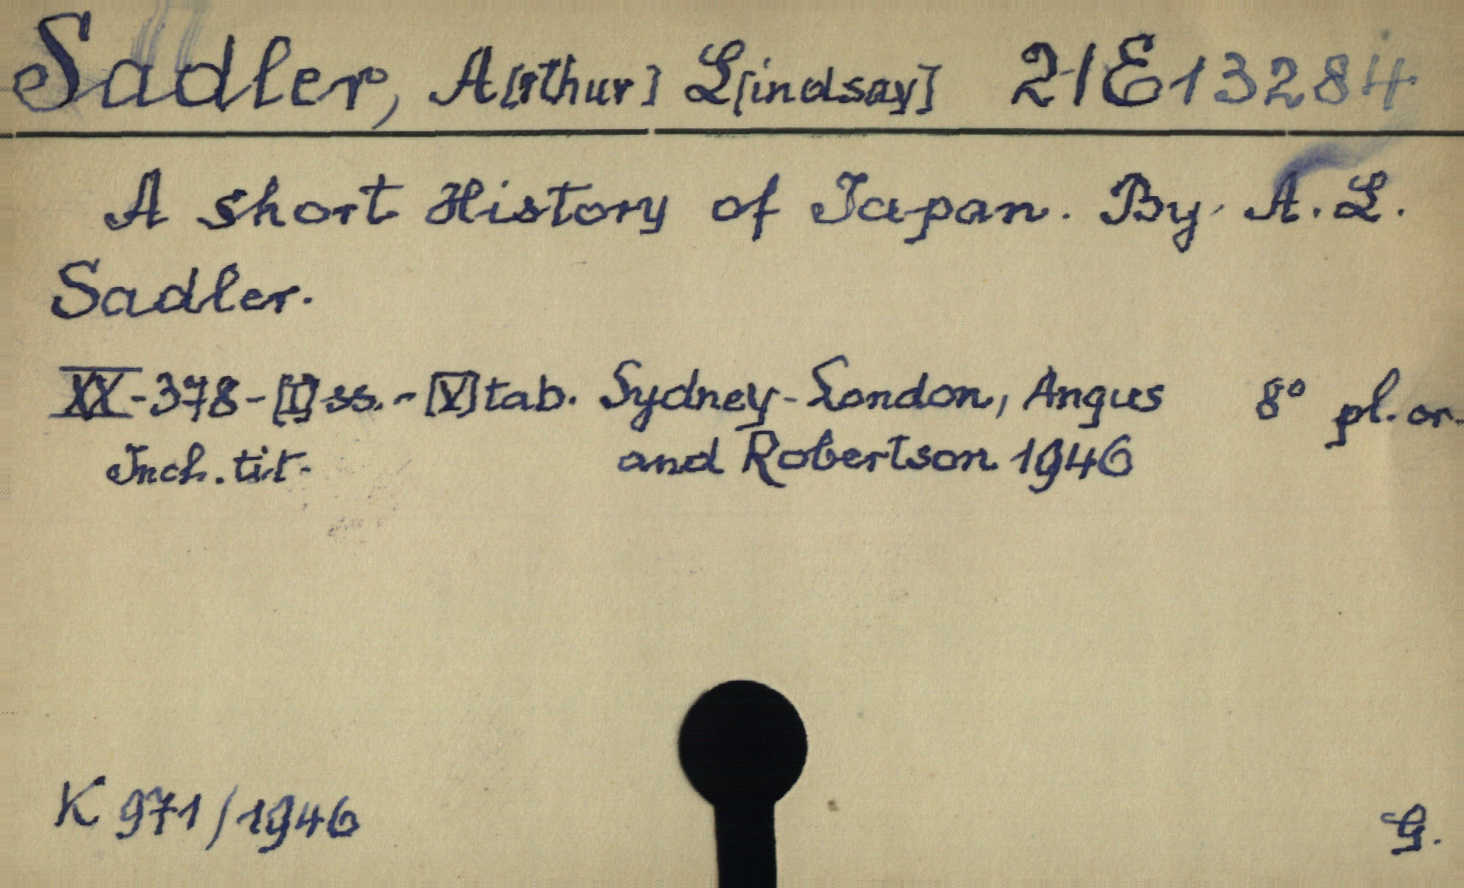 Sadler, A[rthur] L[indsay] 21E13284
A short History of Japan. By A. L.
Sadler.
XX-378-[I] ss.-[V] tab. Sydney-London, Angus 8° pl. or.
Incl. tit. and Robertson 1946
K 971/1946 G.